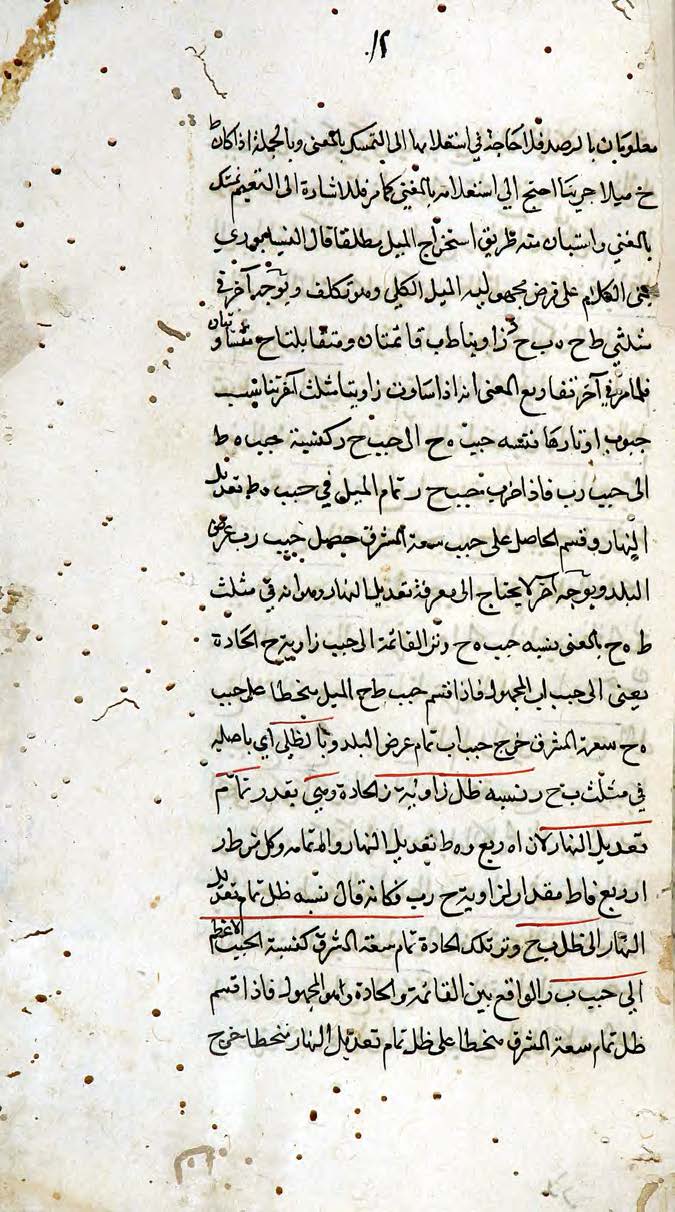 معلومان بالرصد فلا حاجة في استعلامها الى التمسك بالمغنى وبالجملة اذا كان ط
ح ميلا جزئيا احتج الى استعلامه بالمغنى كما مر فللاشارة الى التعميم تمسك
بالمغني واستبان منه طريق استخراج الميل مطلقا قال النيسابوري
الكلام على فرض مجهولية الميل الكلي وهو تكلف وبوجه آخر في
مثلثي ط ح ه ب ح ر زاويتا ط ب قائمتان ومتقابلتا ح متساويتان
فلما مر في آخر تفاريع المغنى انه اذا ساوت زاويتا مثلث آخر تناسب
جيوب اوتارها فنسبه جيب ه ح الى جيب ح ر كنسبة جيب ه ط
الى جيب رب فاذا ضرب جيب ح ر تمام الميل في جيب ه ط تعديل
النهار وقسم الحاصل على جيب سعة المشرق حصل جيب رب عرض
البلد وبوجه آخر لا يحتاج الى معرفة تعديل النهار وهو انه في مثلث
ط ه ح بالمغنى نسبه جيب ه ح وتر القائمة الى جيب زاوية ح الحادة
يعنى الى جيب اب المجهول فاذا قسم جيب ط ح الميل منحطا على جيب
ه ح سعة المشرق خرج جيب اب تمام عرض البلد وبالظلي اي باصليه
في مثلث ب ح ر نسبه ظل زاوية ر الحادة وهي بقدر تمام
تعديل النهار لان اه ربع وه ط تعديل النهار واط تمامه وكل من ط ر
ار ربع فاط مقدار لزاوية ح رب فكانه قال نسبه ظل تمام تعديل
النهار الى ظل ب ح وتر تلك الحادة تمام سعة المشرق كنسبة الجيب الاعظم
الى جيب ب ر الواقع بين القائمة والحادة وهو المجهول فاذا قسم
ظل تمام سعة المشرق منحطا على ظل تمام تعديل النهار منحطا خرج